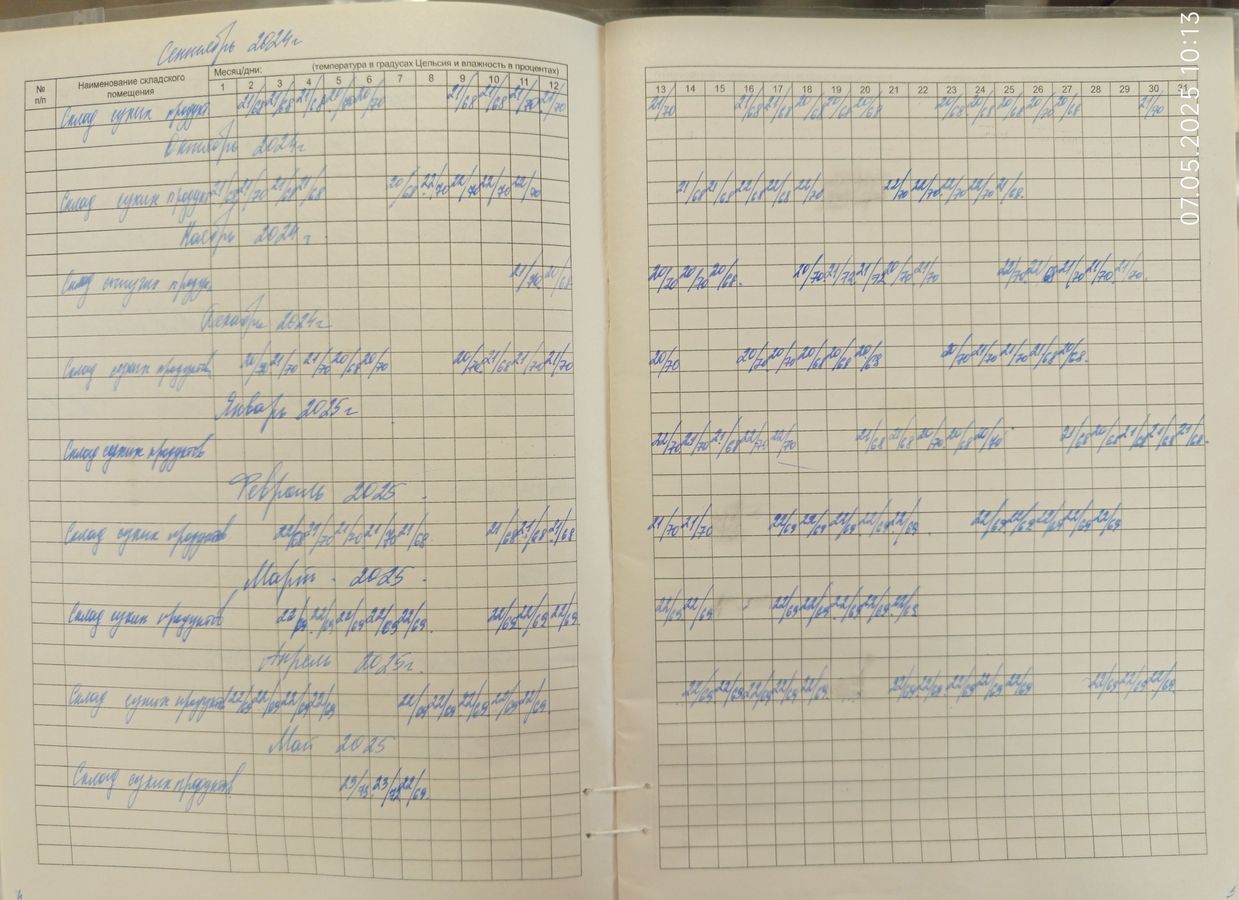 Сентябрь 2024г
№ п/п
Наименование складского помещения
Месяц/дни: (температура в градусах Цельсия и влажность в процентах)
1 2 3 4 5 6 7 8 9 10 11 12
13 14 15 16 17 18 19 20 21 22 23 24 25 26 27 28 29 30 31
Склад сухих продукт 21/68 21/68 21/68 20/70 20/70 21/68 21/68 21/70 21/70
21/70 21/68 21/68 20/68 20/68 20/68 20/68 20/68 20/68 20/70 20/68 21/70
Октябрь 2024г
Склад сухих продукт 21/68 21/70 21/68 21/68 20/68 22/70 22/70 22/70 22/70
21/68 21/68 22/68 22/68 22/70 22/70 22/70 22/70 22/70 21/68.
Ноябрь 2024г.
Склад сыпучих продук. 21/70 20/68
20/70 20/70 20/68. 20/70 21/72 21/72 20/70 21/70 22/70 21/68 21/70 21/70 21/70.
Декабрь 2024г
Склад сухих продуктов 20/70 21/70 21/70 20/68 20/70 20/70 21/68 21/70 21/70
20/70 20/70 20/70 20/68 20/68 20/68 20/70 21/70 21/70 21/68 20/68.
Январь 2025г
Склад сухих продуктов
22/70 21/70 21/68 22/70 22/70 21/68 21/68 20/70 20/68 20/70 21/68 20/68 21/68 21/68 21/68.
Февраль 2025.
Склад сухих продуктов 22/68 21/70 21/70 21/70 21/68 21/68 21/68 21/68
21/70 21/70 22/69 22/69 22/69 22/69 22/69. 22/69 22/69 22/69 22/69 22/69
Март 2025.
Склад сухих продуктов 22/69 22/69 22/69 22/69 22/69. 22/69 22/69 22/69
22/69 22/69 22/69 22/69 22/69 22/69 22/69
Апрель 2025г.
Склад сухих продуктов 22/69 22/69 22/69 22/69 22/69 22/69 22/69 22/69 22/69
22/69 22/69 22/69 22/69 22/69 22/69 22/69 22/69 22/69 22/69 22/69 22/69 22/69
Май 2025
Склад сухих продуктов. 23/73 23/72 22/69.
07.05.2025 10:13